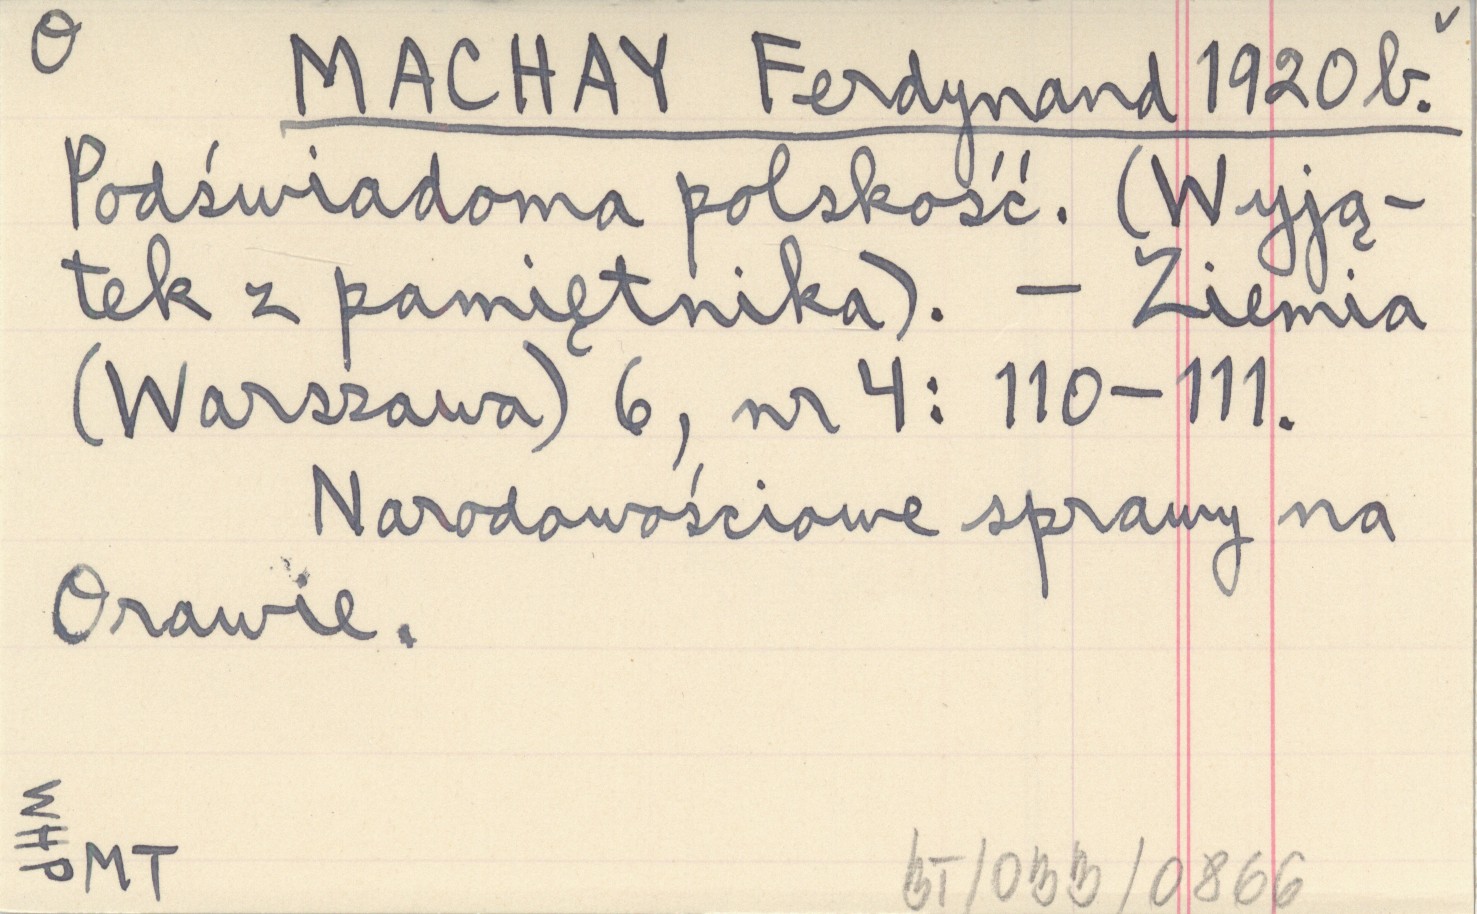 O
MACHAY Ferdynand 1920b.
Podświadoma polskość. (Wyją-
tek z pamiętnika). — Ziemia
(Warszawa) 6, nr 4: 110-111.
Narodowościowe sprawy na
Orawie.
WHP
MT
BT/033/0866